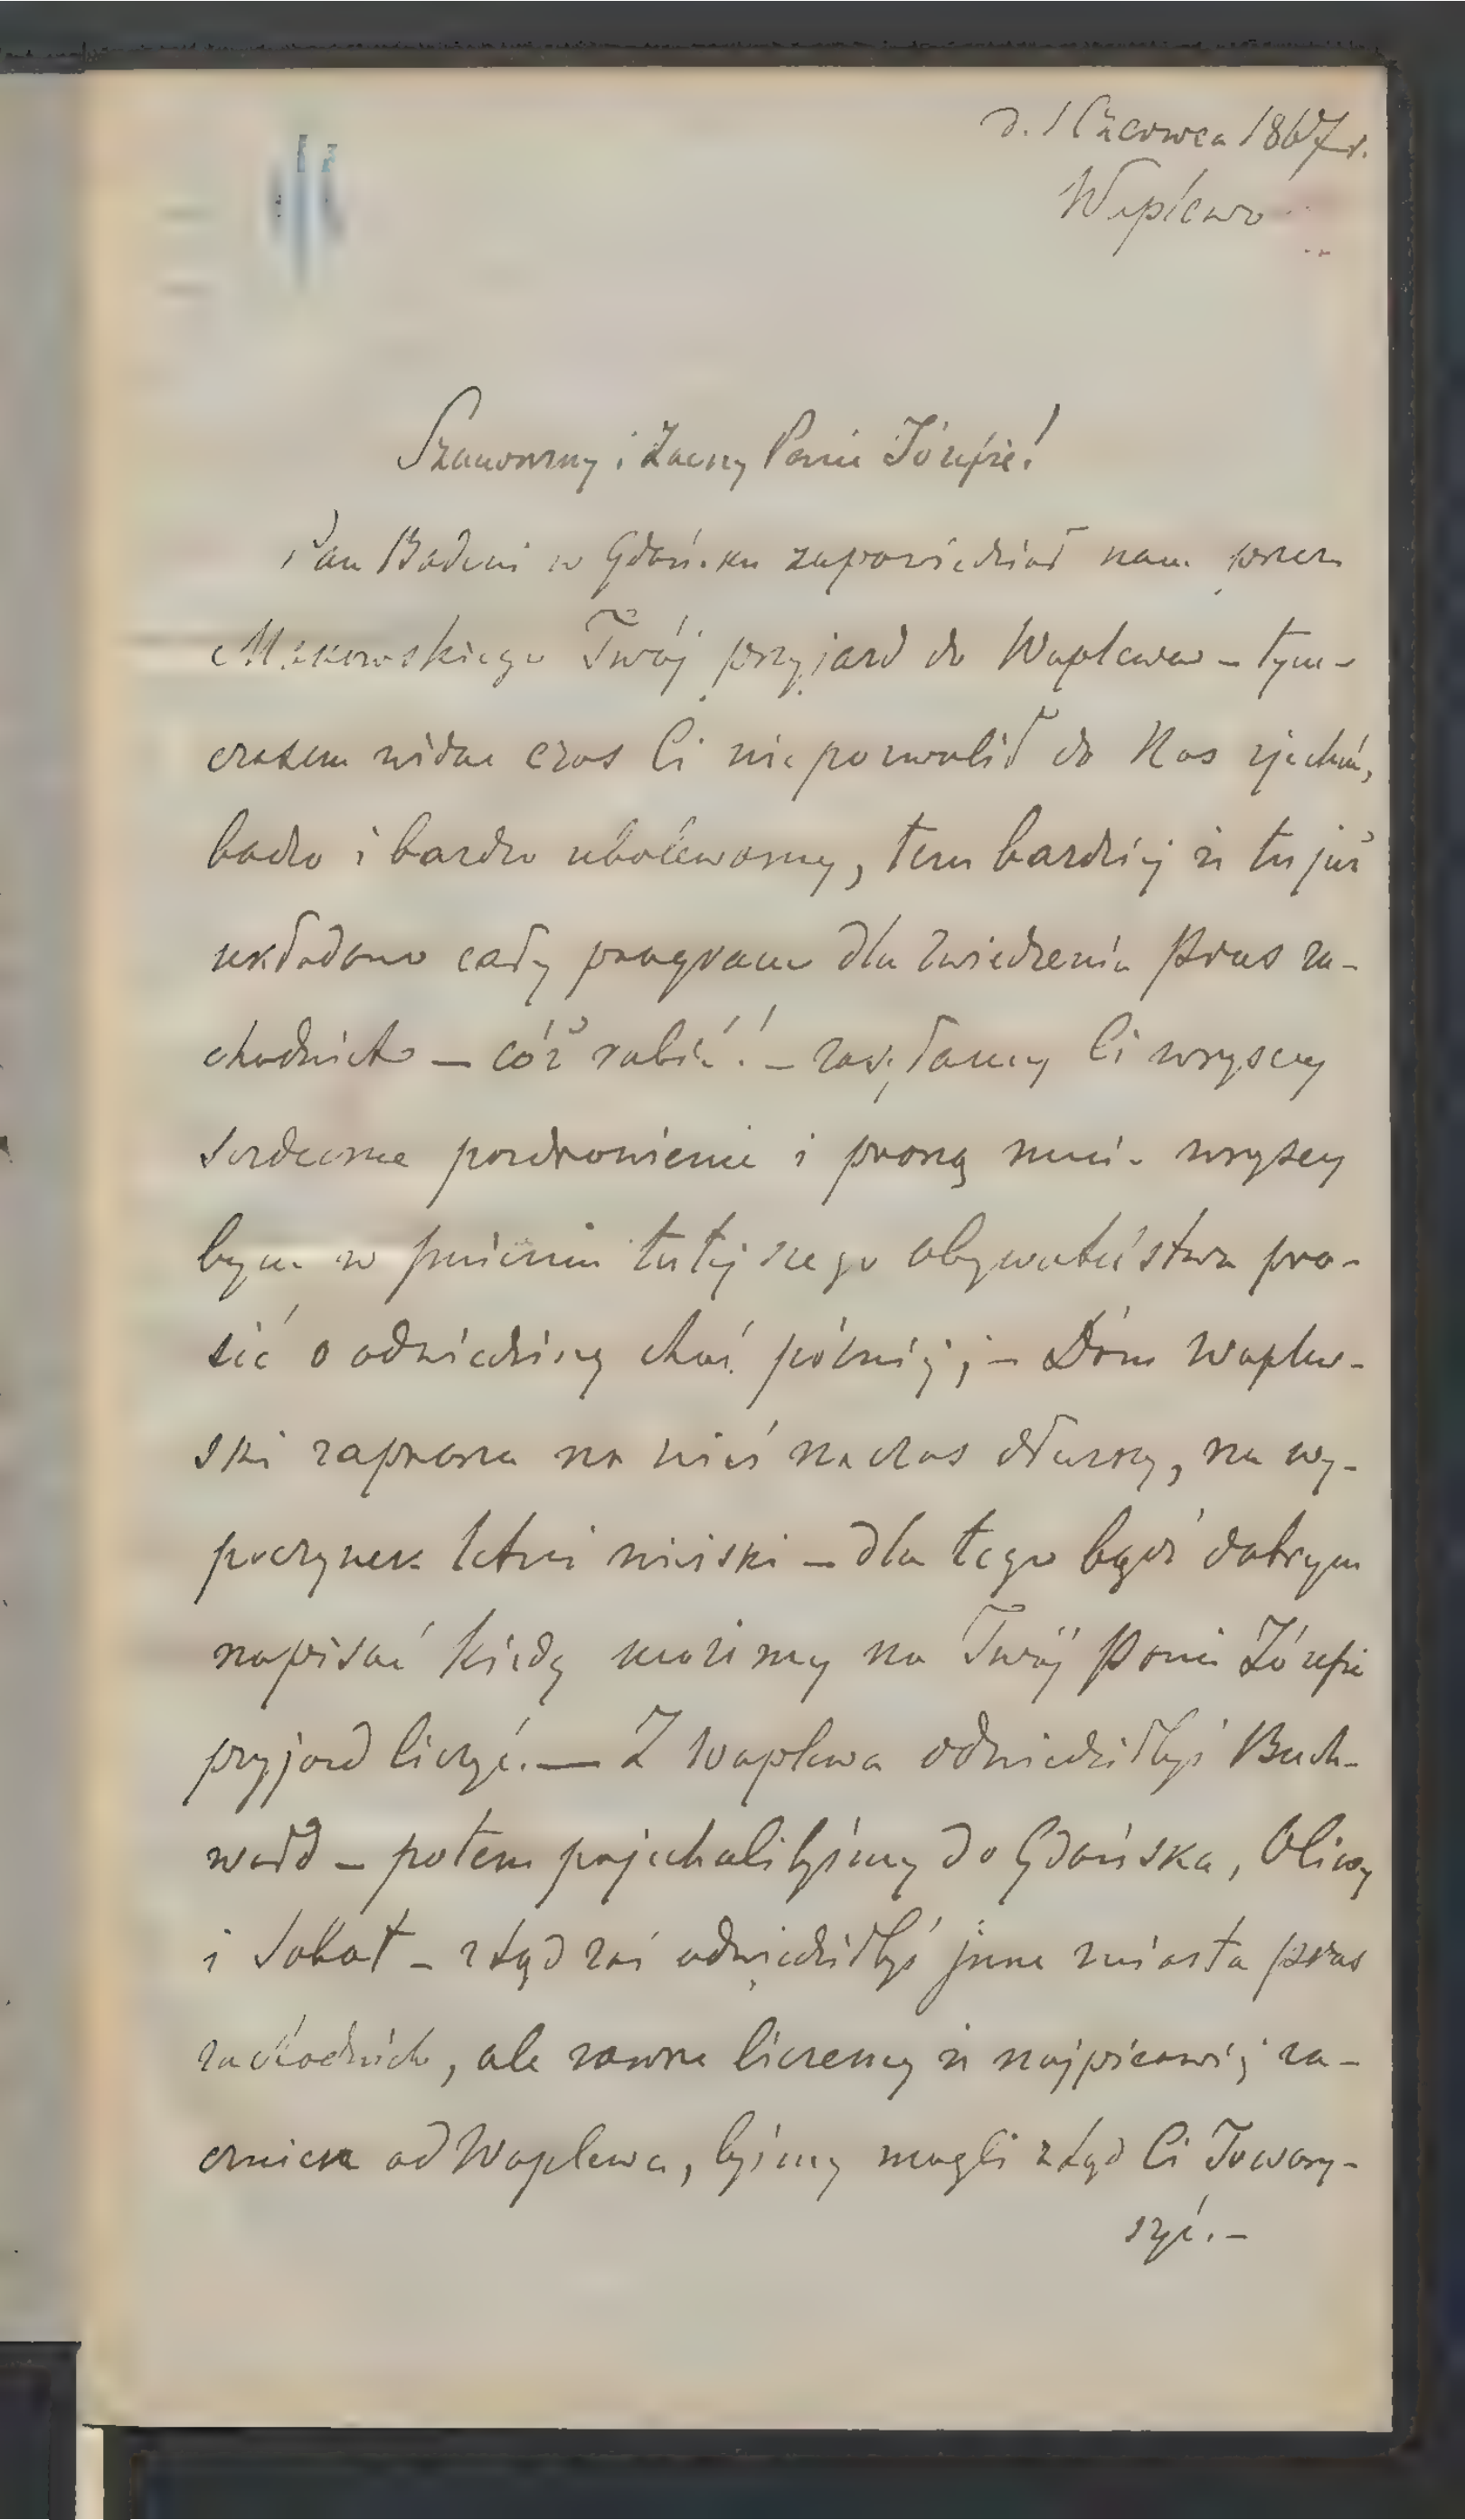 d. 1 Czerwca 1867 r.
Waplewo
Szanowny i Zacny Panie Józefie!
Pan Badeni w Gdańsku zapowiedział nam przez
Makowskiego Twój przyjazd do Waplewa – tym-
czasem widać czas Ci nie pozwolił do Nas zjechać,
bardzo i bardzo ubolewamy, tem bardziej iż tu już
układano cały program dla zwiedzenia Prus za-
chodnich – cóż robić! – zasyłamy Ci wszyscy
serdeczne pozdrowienie i proszą mnie wszyscy
bym w imieniu tutejszego obywatelstwa pro-
sić o odwiedziny choć później; – Dóm Waplew-
ski zaprasza na wieś na czas dłuższy, na wy-
poczynek letni wiejski – dla tego bądź dobrym
napisać kiedy możemy na Twój Panie Józefie
przyjazd liczyć. — Z Waplewa odwiedziłbyś Buch-
wałd – potem pojechalibyśmy do Gdańska, Oliwy
i Sobot – ztąd zaś odwiedziłbyś inne miasta prus
zachodnich, ale zawsze liczemy iż najpierwéj za-
czniesz od Waplewa, byśmy mogli ztąd Ci Towarzy-
szyć. –